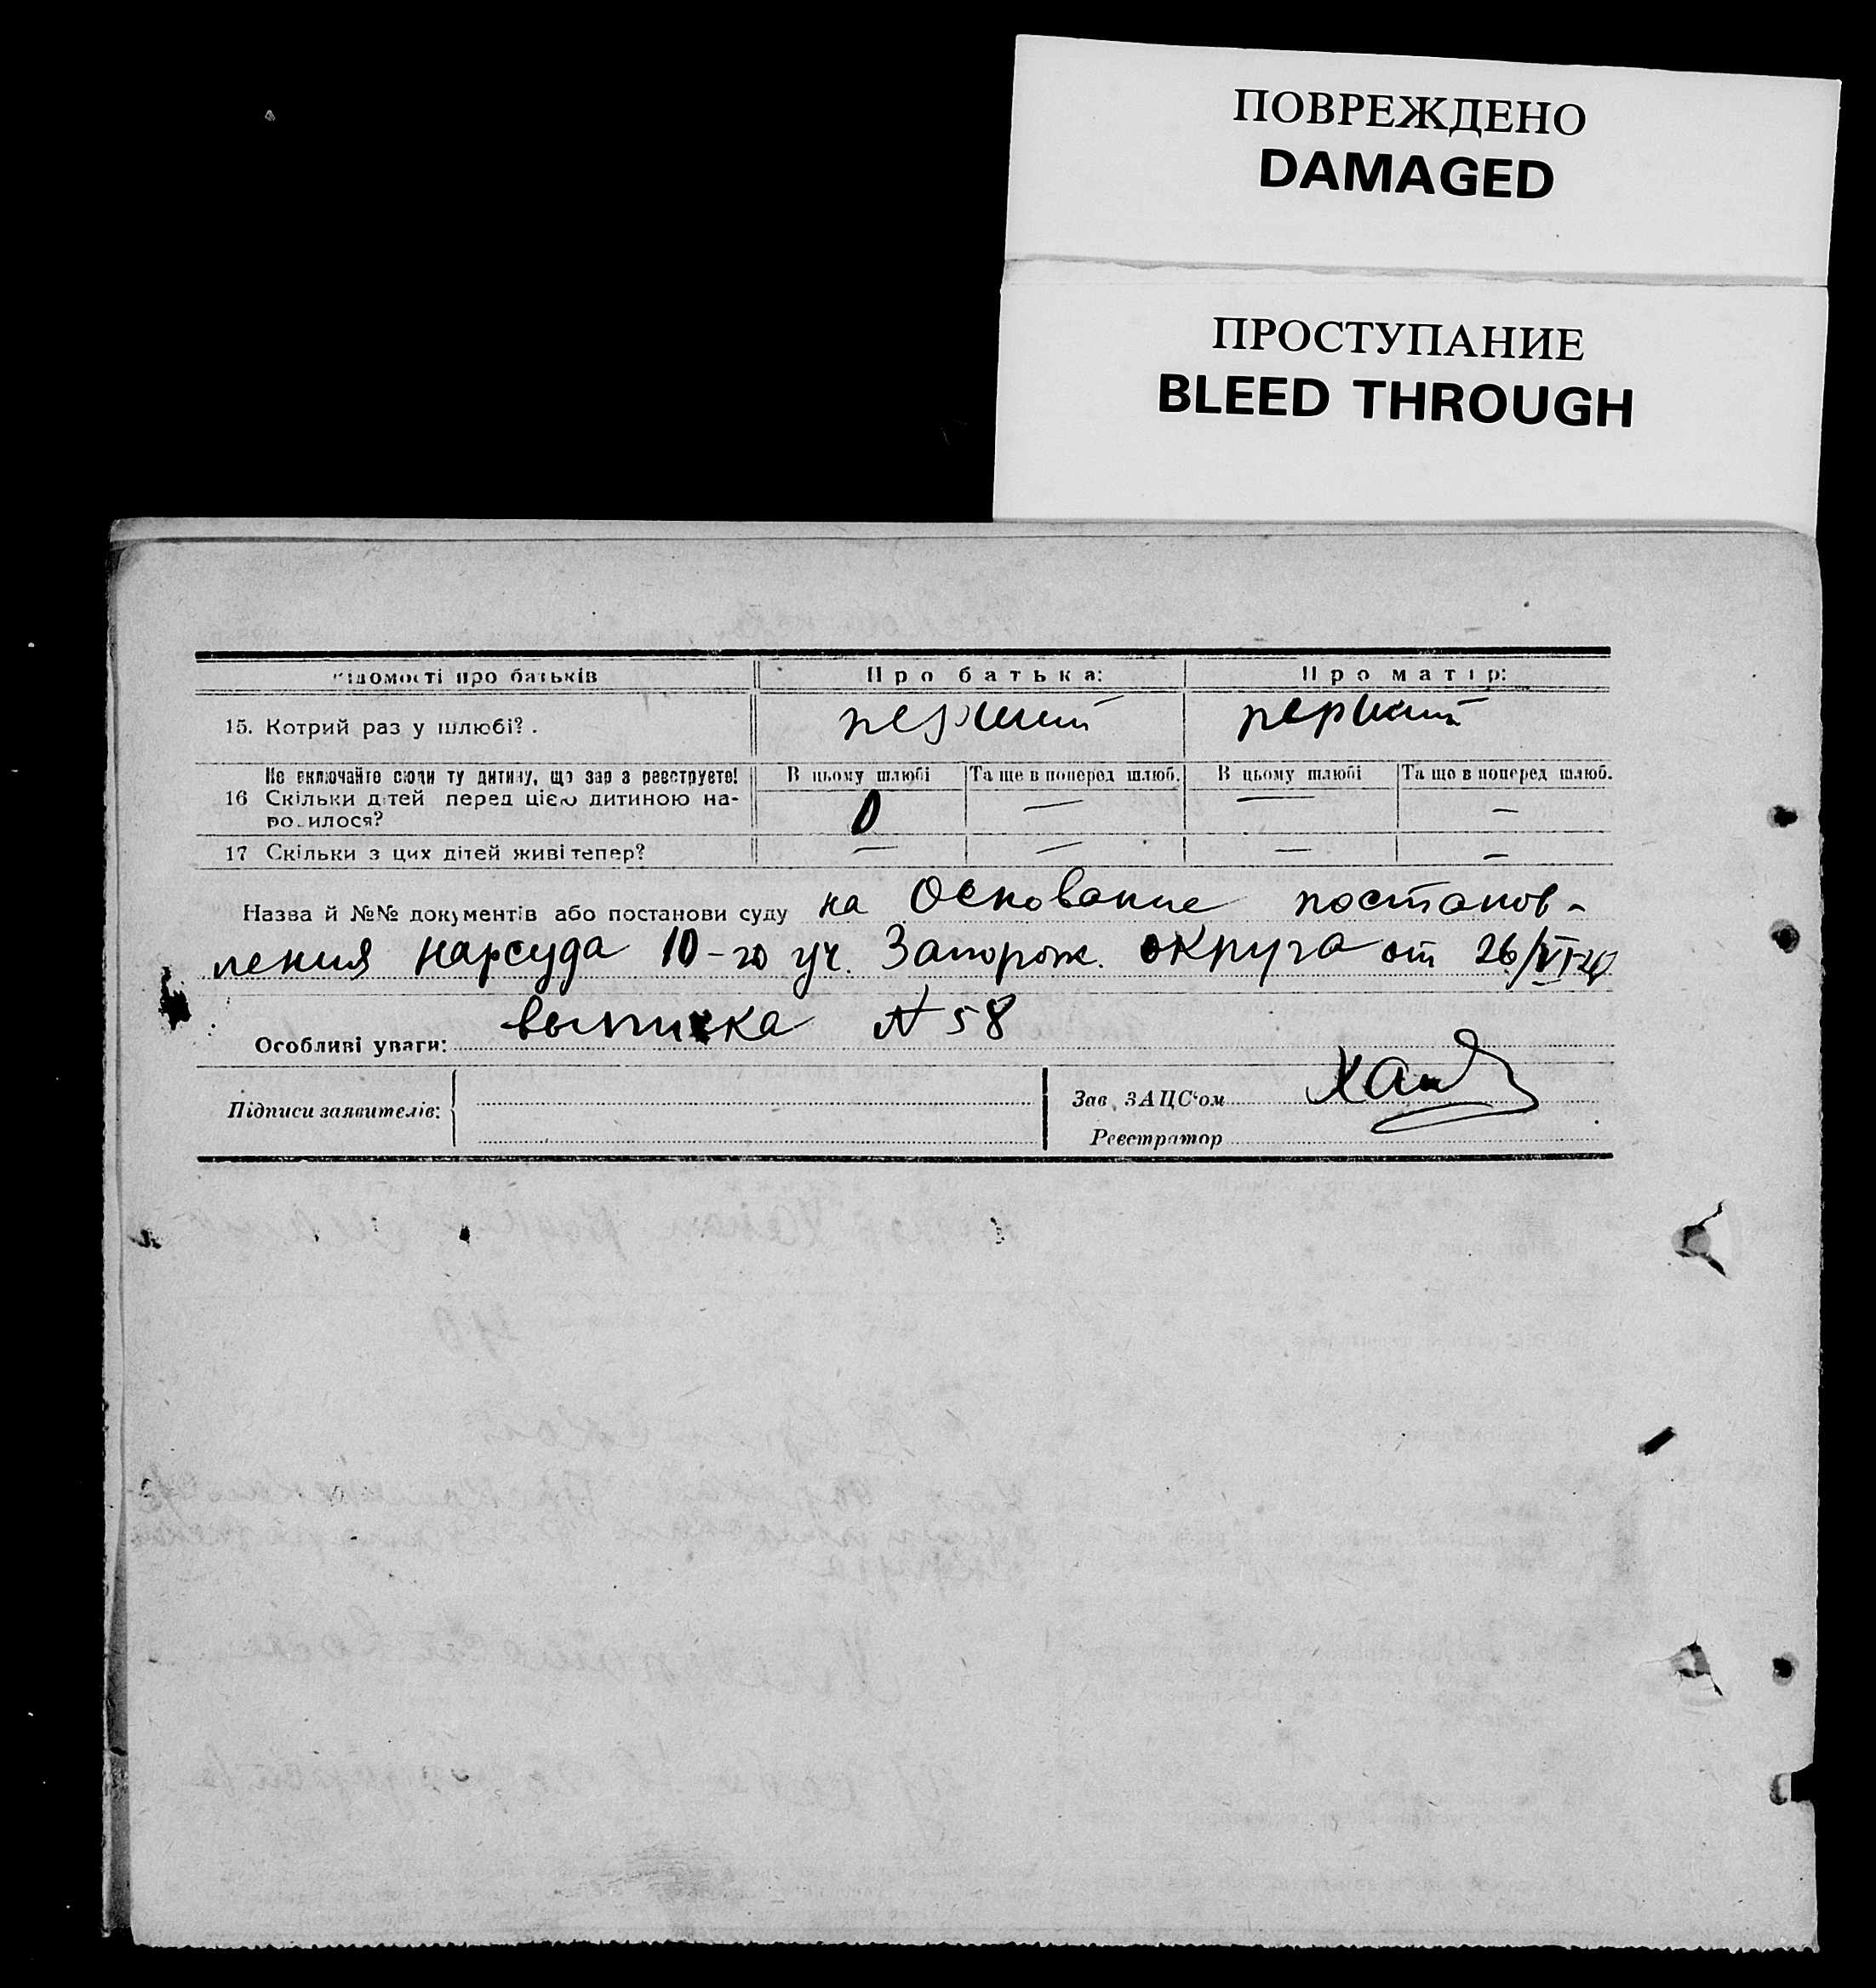 ПОВРЕЖДЕНО
DAMAGED
ПРОСТУПАНИЕ
BLEED THROUGH
ідомості про батьків Про батька: Про матір:
15. Котрий раз у шлюбі?. первий первий
Не включайте сюди ту дитину, що зар з реєструєте! В цьому шлюбі Та ще в поперед шлюб. В цьому шлюбі Та що в поперед шлюб.
16 Скільки дітей перед цією дитиною на-
ро илося? 0 — — —
17 Скільки з цих дітей живі тепер? — — — —
Назва й №№ документів або постанови суду на Основание постанов-
ления нарсуда 10-го уч. Запорож. округа от 26/VI
Особливі уваги: выписка N 58
Підписи заявителів: Зав. ЗАЦС'ом
Реєстратор